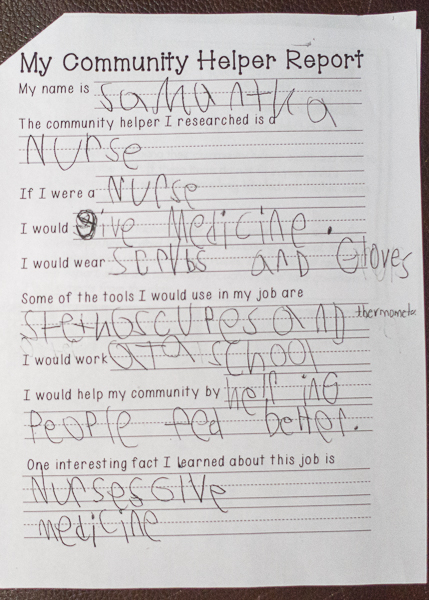 My Community Helper Report
My name is Samantha
The community helper I researched is a
Nurse
If I were a Nurse
I would give Medicine.
I would wear scrubs and Gloves
Some of the tools I would use in my job are
stethoscupes and thermometer
I would work at a school
I would help my community by helping
People feel better.
One interesting fact I learned about this job is
Nurses Give
medicine